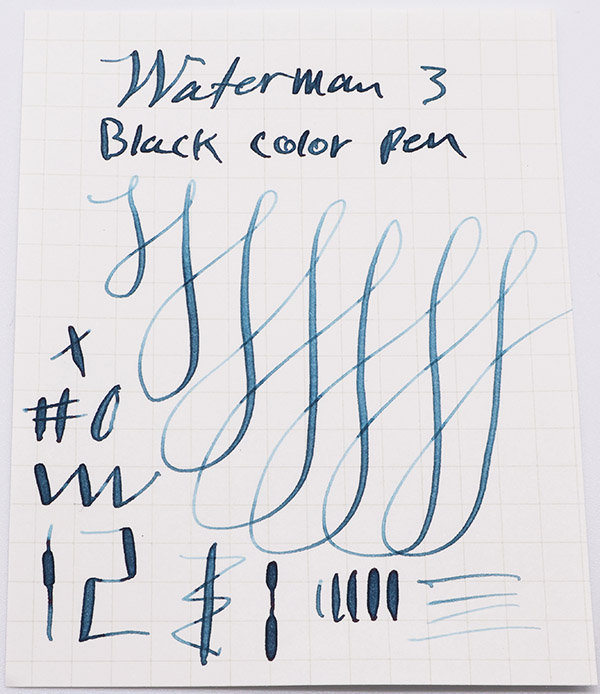 Waterman 3
Black color pen
x
#0
12